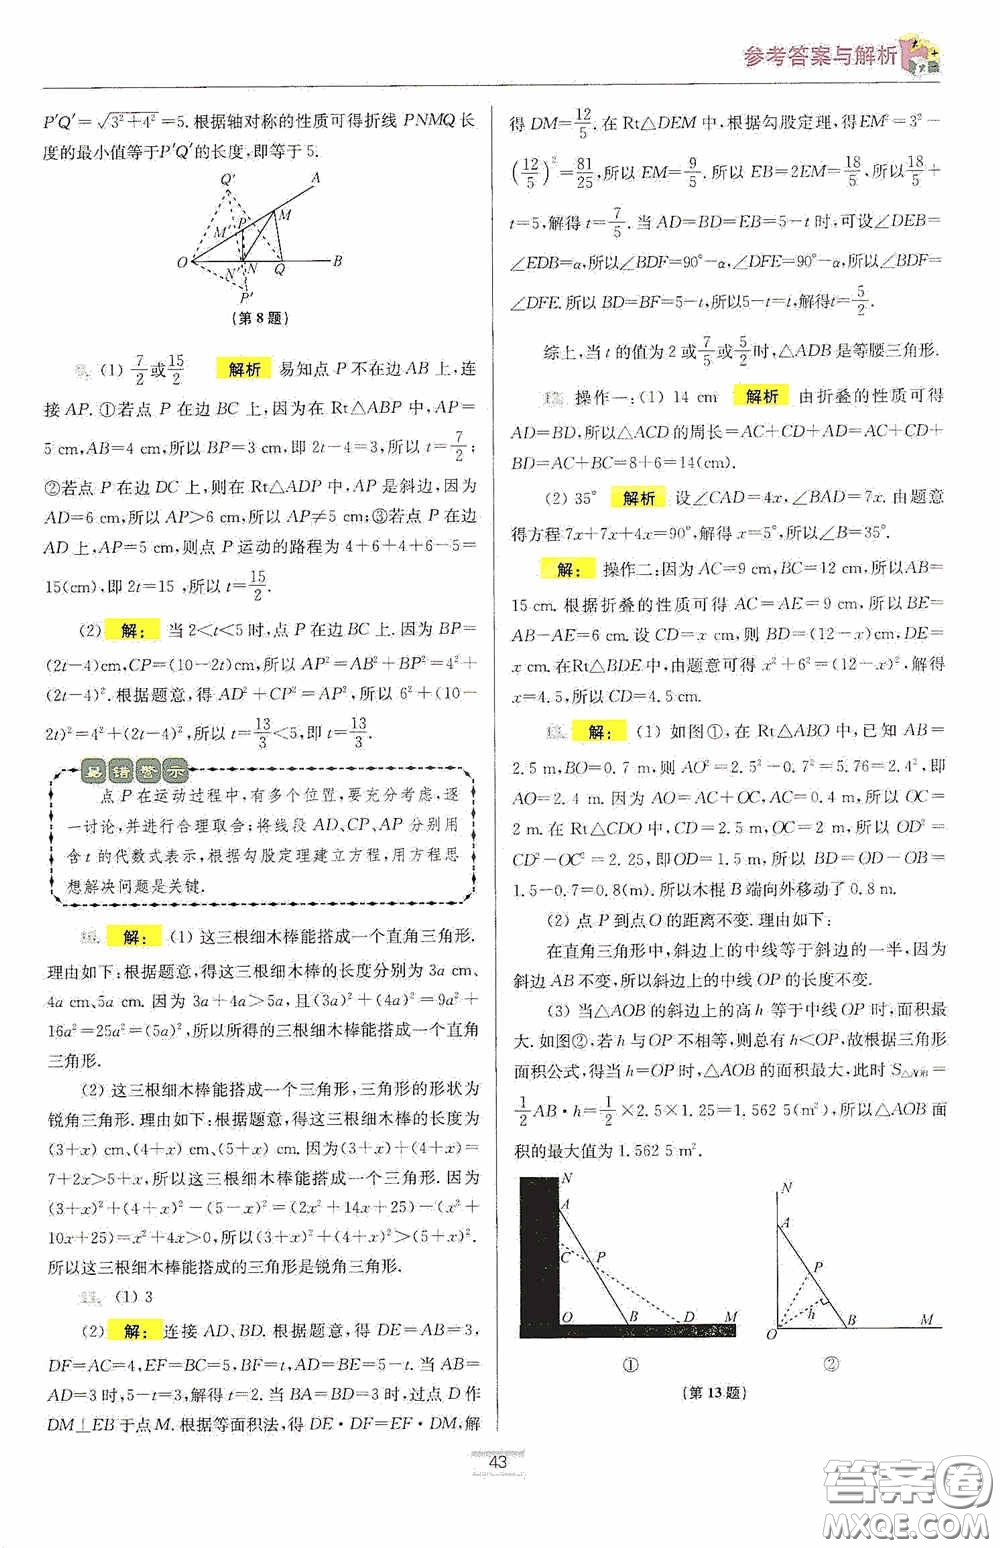 参考答案与解析
P′Q′=√(3²+4²)=5.根据轴对称的性质可得折线 PNMQ 长
度的最小值等于P′Q′的长度,即等于 5.
Q′
A
M
P
M′
O
N′
N
Q
B
P′
(第 8 题)
(1) 7/2或15/2 解析 易知点 P 不在边 AB 上,连
接 AP. ①若点 P 在边 BC 上,因为在 Rt△ABP 中,AP=
5 cm,AB=4 cm,所以 BP=3 cm,即 2t-4=3,所以 t=7/2;
②若点 P 在边 DC 上,则在 Rt△ADP 中,AP 是斜边,因为
AD=6 cm,所以 AP>6 cm,所以 AP≠5 cm;③若点 P 在边
AD 上,AP=5 cm,则点 P 运动的路程为 4+6+4+6-5=
15(cm),即 2t=15 ,所以 t=15/2.
(2) 解: 当 2<t<5 时,点 P 在边 BC 上.因为 BP=
(2t-4)cm,CP=(10-2t)cm,所以 AP²=AB²+BP²=4²+
(2t-4)².根据题意,得 AD²+CP²=AP²,所以 6²+(10-
2t)²=4²+(2t-4)²,所以 t=13/3<5,即 t=13/3.
易错警示
点 P 在运动过程中,有多个位置,要充分考虑,逐
一讨论,并进行合理取舍;将线段 AD、CP、AP 分别用
含 t 的代数式表示,根据勾股定理建立方程,用方程思
想解决问题是关键.
解: (1) 这三根细木棒能搭成一个直角三角形.
理由如下:根据题意,得这三根细木棒的长度分别为 3a cm、
4a cm、5a cm. 因为 3a+4a>5a,(3a)²+(4a)²=9a²+
16a²=25a²=(5a)²,所以所得的三根细木棒能搭成一个直角
三角形.
(2) 这三根细木棒能搭成一个三角形,三角形的形状为
锐角三角形.理由如下:根据题意,得这三根细木棒的长度为
(3+x)cm、(4+x)cm、(5+x)cm. 因为(3+x)+(4+x)=
7+2x>5+x,所以这三根细木棒能搭成一个三角形. 因为
(3+x)²+(4+x)²-(5-x)²=(2x²+14x+25)-(x²+
10x+25)=x²+4x>0,所以(3+x)²+(4+x)²>(5+x)².
所以这三根细木棒能搭成的三角形是锐角三角形.
(1) 3
(2) 解: 连接 AD、BD. 根据题意,得 DE=AB=3,
DF=AC=4,EF=BC=5,BF=t,AD=BE=5-t. 当 AB=
AD=3 时,5-t=3,解得 t=2. 当 BA=BD=3 时,过点 D 作
DM⊥EB 于点 M. 根据等面积法,得 DE·DF=EF·DM,解
得 DM=12/5.在 Rt△DEM 中,根据勾股定理,得EM²=3²-
(12/5)²=81/25,所以 EM=9/5.所以 EB=2EM=18/5,所以18/5+
t=5,解得 t=7/5.当 AD=BD=EB=5-t 时,可设∠DEB=
∠EDB=α,所以∠BDF=90°-α,∠DFE=90°-α,所以∠BDF=
∠DFE.所以 BD=BF=5-t,所以5-t=t,解得t=5/2.
综上,当 t 的值为 2 或7/5或5/2时,△ADB 是等腰三角形.
操作一:(1) 14 cm 解析 由折叠的性质可得
AD=BD,所以△ACD 的周长=AC+CD+AD=AC+CD+
BD=AC+BC=8+6=14(cm).
(2) 35° 解析 设∠CAD=4x,∠BAD=7x. 由题意
得方程7x+7x+4x=90°,解得 x=5°,所以∠B=35°.
解: 操作二:因为 AC=9 cm,BC=12 cm,所以AB=
15 cm. 根据折叠的性质可得 AC=AE=9 cm,所以 BE=
AB-AE=6 cm. 设 CD=x cm,则 BD=(12-x)cm,DE=
x cm.在Rt△BDE 中,由题意可得 x²+6²=(12-x)²,解得
x=4.5,所以 CD=4.5 cm.
解: (1) 如图①,在 Rt△ABO 中,已知 AB=
2.5 m,BO=0.7 m,则 AO²=2.5²-0.7²=5.76=2.4²,即
AO=2.4 m. 因为 AO=AC+OC,AC=0.4 m,所以 OC=
2 m.在 Rt△CDO 中,CD=2.5 m,OC=2 m,所以 OD²=
CD²-OC²=2.25,即OD=1.5 m,所以 BD=OD-OB=
1.5-0.7=0.8(m).所以木棍 B 端向外移动了 0.8 m.
(2) 点 P 到点 O 的距离不变.理由如下:
在直角三角形中,斜边上的中线等于斜边的一半,因为
斜边 AB 不变,所以斜边上的中线 OP 的长度不变.
(3) 当△AOB 的斜边上的高 h 等于中线 OP 时,面积最
大. 如图②,若 h 与 OP 不相等,则总有 h<OP,故根据三角形
面积公式,得当 h=OP 时,△AOB 的面积最大,此时 S△AOB=
1/2AB·h=1/2×2.5×1.25=1.562 5(m²),所以△AOB 面
积的最大值为 1.562 5 m².
N
A
C
P
O
B
D
M
①
N
A
P
h
O
B
M
②
(第 13 题)
43
答案圈
MXQE.COM